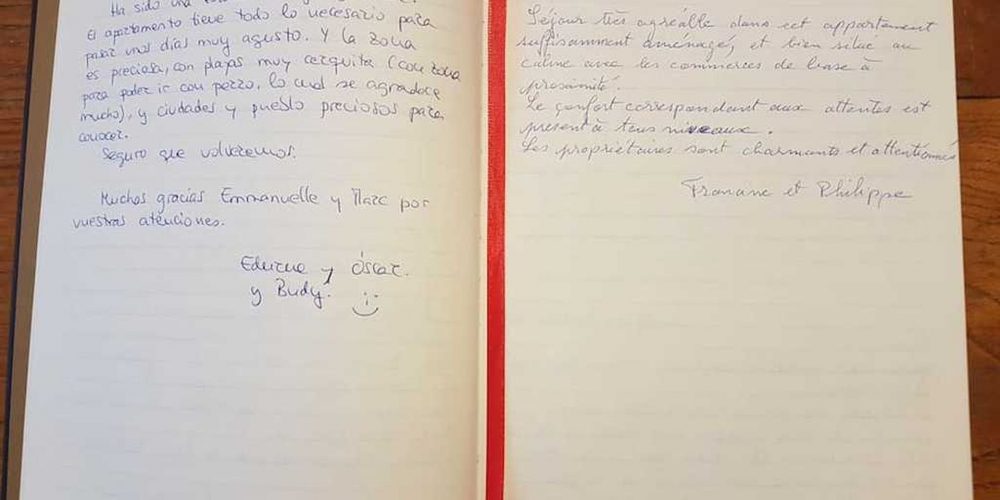 Ha sido una
El apartamento tiene todo lo necesario para
pasar unos días muy agusto. Y la zona
es preciosa, con playas muy cerquita (con zona
para poder ir con perro, lo cual se agradece
mucho), y ciudades y pueblo preciosos para
conocer.
Seguro que volveremos.
Muchas gracias Emmanuelle y Marc por
vuestras atenciones.
Edurne y Óscar.
y Budy.
Séjour très agréable dans cet appartement
suffisamment aménagé, et bien situé au
calme avec les commerces de base à
proximité.
Le confort correspondant aux attentes est
présent à tous niveaux.
Les propriétaires sont charmants et attentionnés
Francine et Philippe